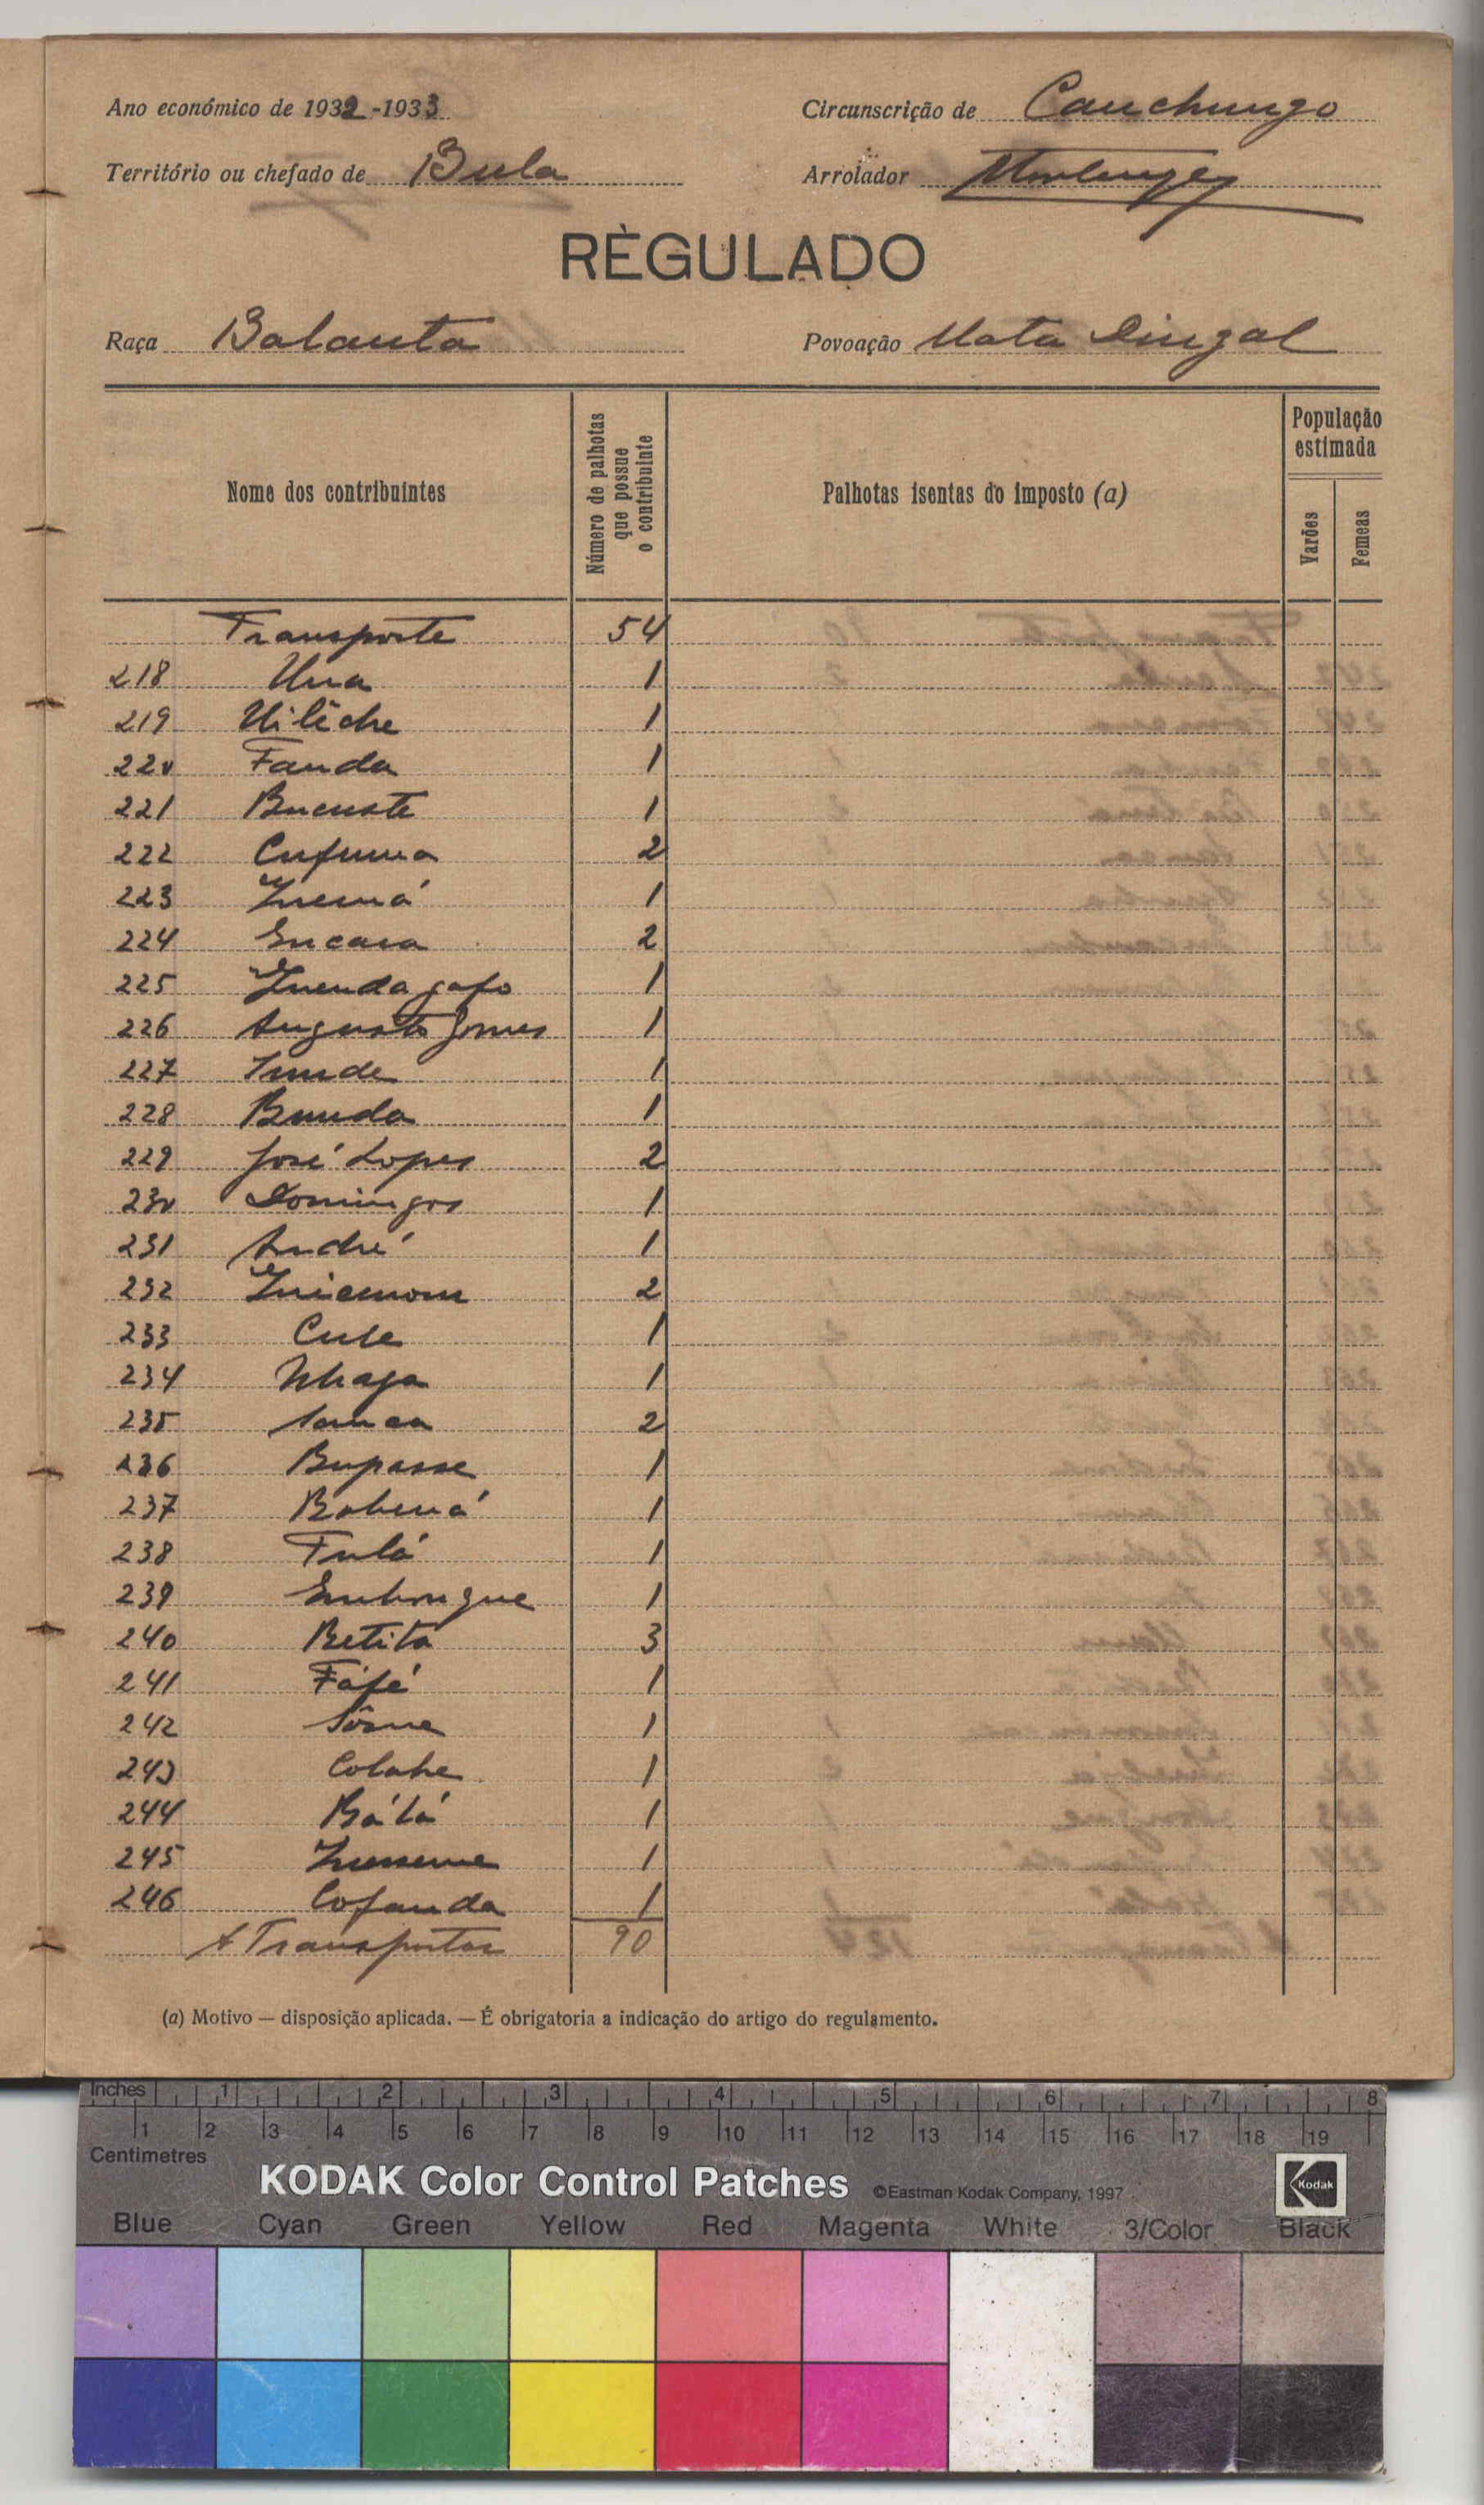 Ano económico de 1932-1933
Circunscrição de Canchungo
Território ou chefado de Bula
Arrolador
RÈGULADO
Raça Balanta
Povoação Mata Dingal
Nome dos contribuintes
Número de palhotas que possue o contribuinte
Palhotas isentas do imposto (a)
População estimada
Varões
Femeas
Transporte 54
218 Una 1
219 Uilêche 1
220 Fanda 1
221 Bucuste 1
222 Cufuma 2
223 1
224 Encara 2
225 1
226 Augusto Gomes 1
227 1
228 Bunda 1
229 José Lopes 2
230 Domingos 1
231 André 1
232 2
233 Cule 1
234 Nhaga 1
235 Sanca 2
236 Bupasse 1
237 1
238 Fulá 1
239 1
240 Betita 3
241 Fáfé 1
242 1
243 1
244 Bálá 1
245 1
246 Cofanda 1
A Transportar 90
(a) Motivo — disposição aplicada. — É obrigatoria a indicação do artigo do regulamento.
Inches 1 2 3 4 5 6 7 8
1 2 3 4 5 6 7 8 9 10 11 12 13 14 15 16 17 18 19
Centimetres
KODAK Color Control Patches ©Eastman Kodak Company, 1997 Kodak
Blue Cyan Green Yellow Red Magenta White 3/Color Black